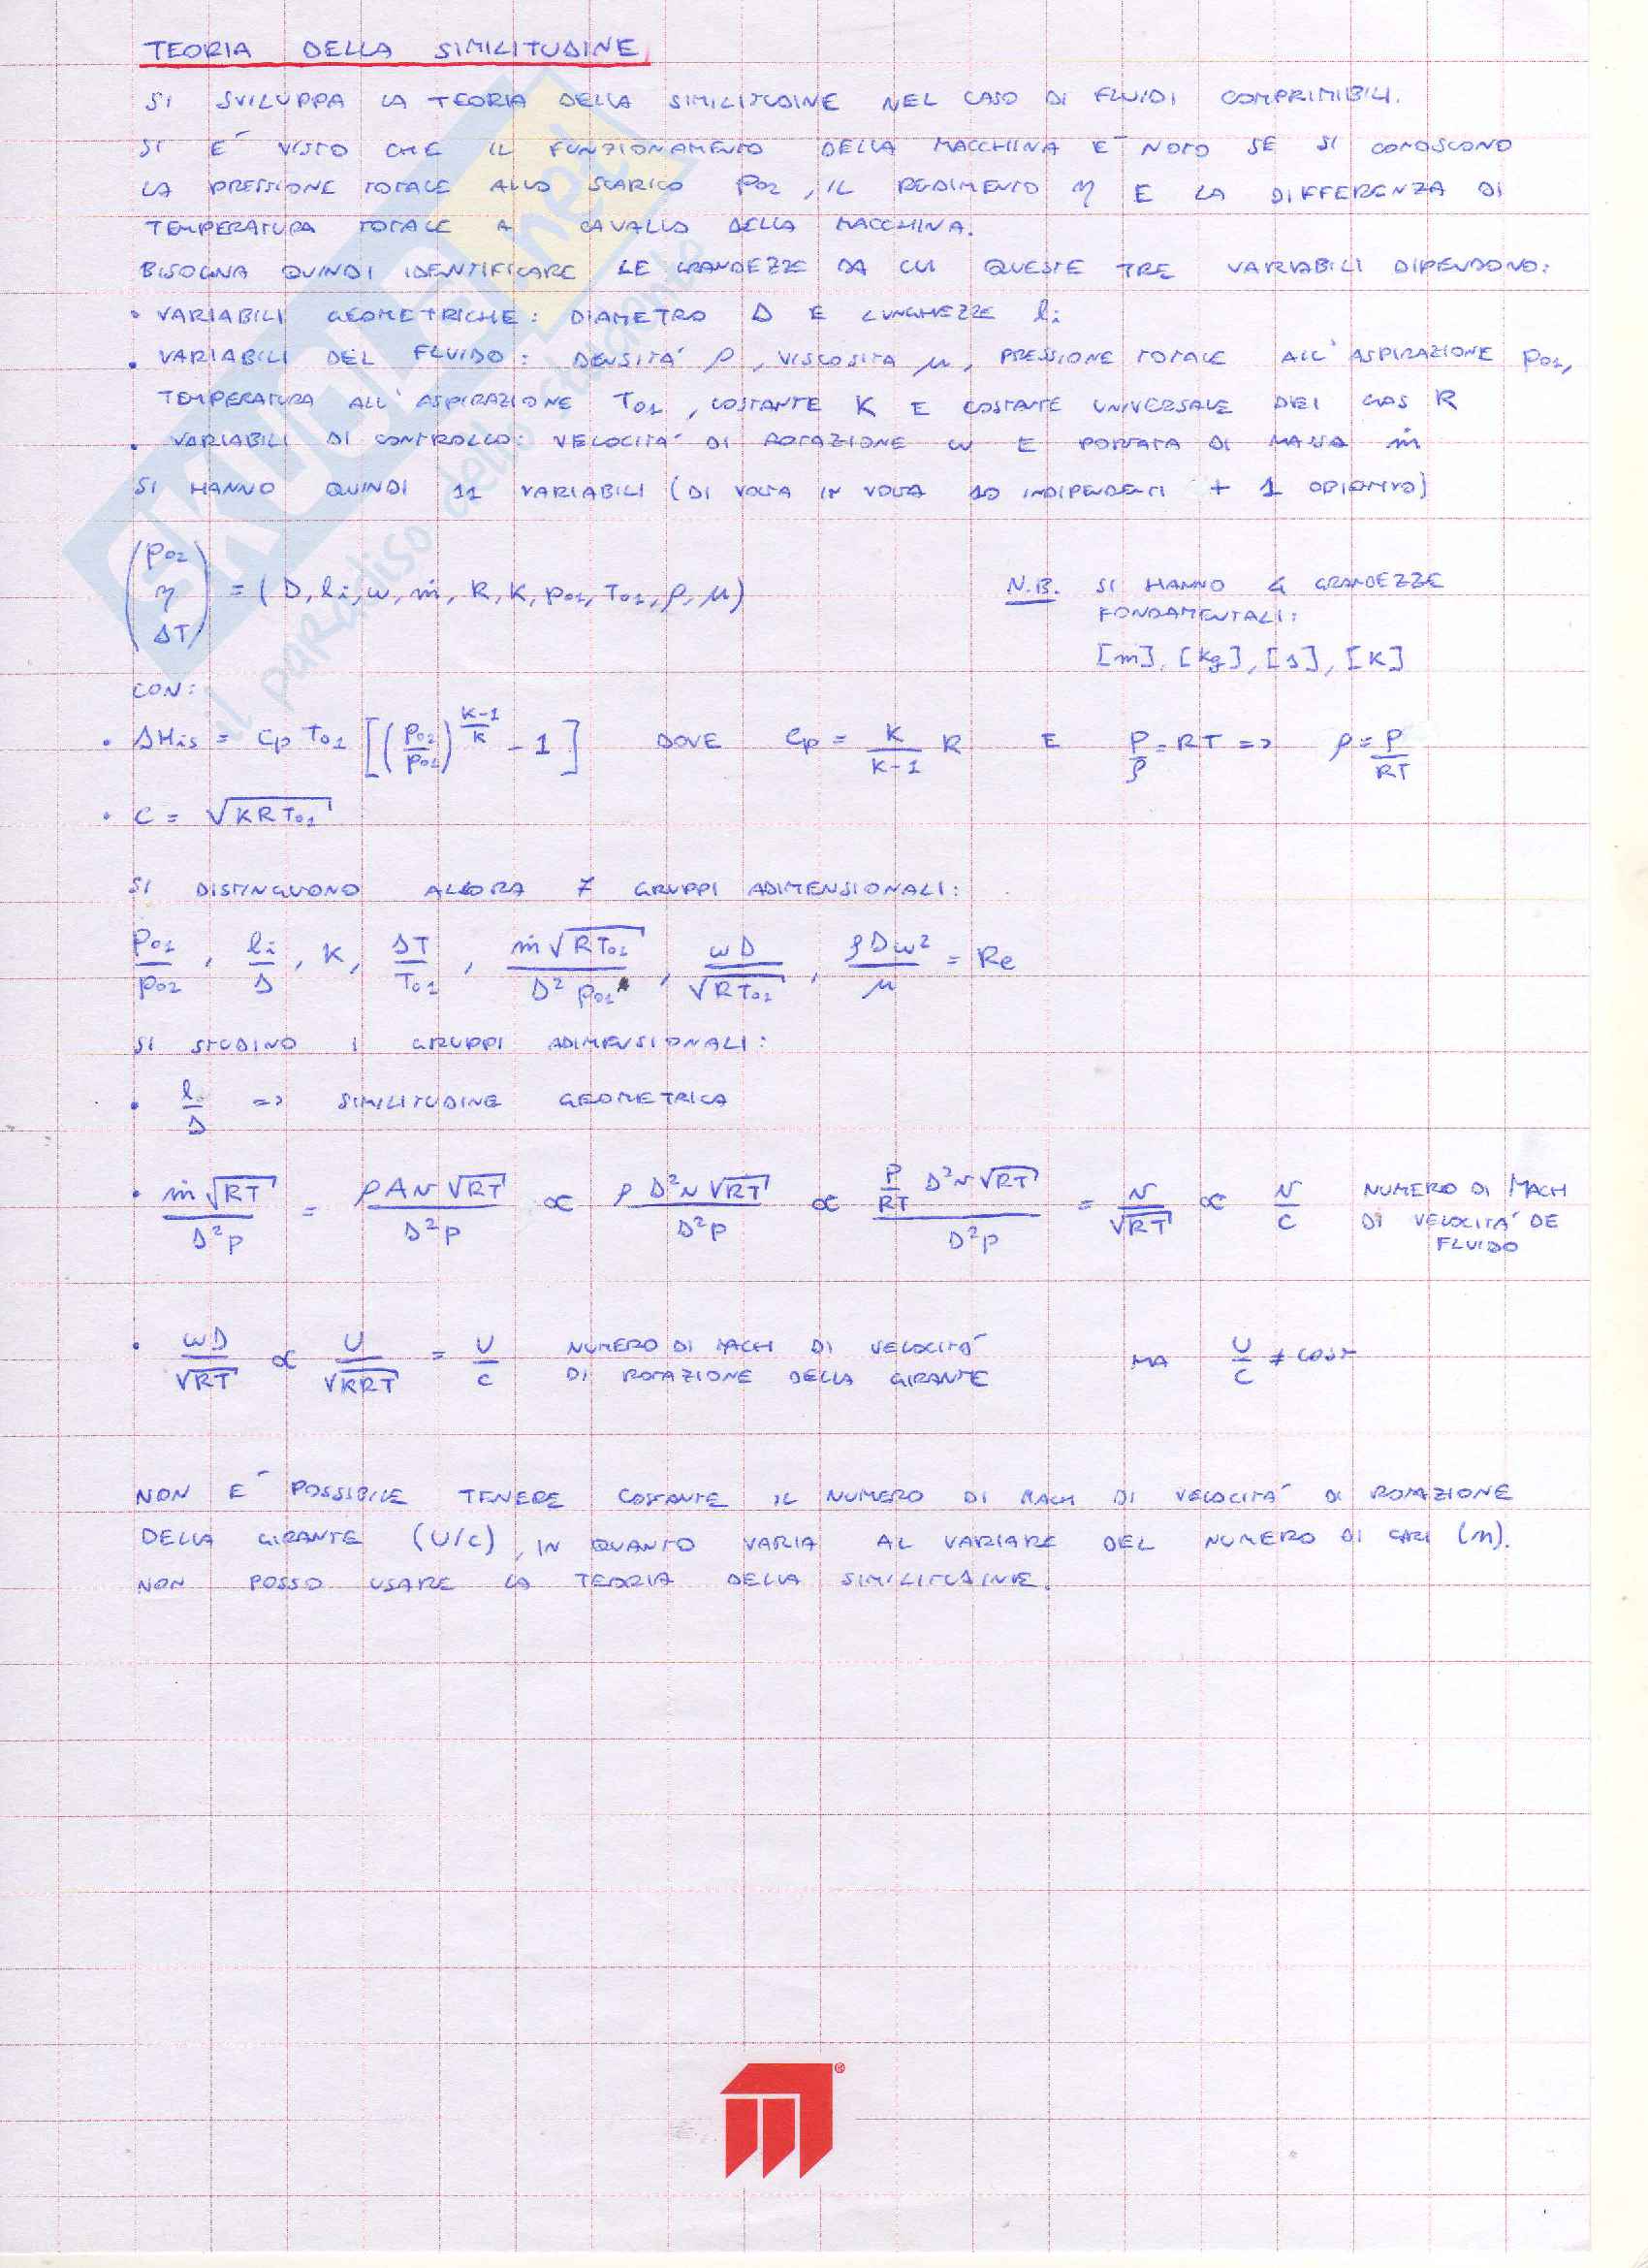 TEORIA DELLA SIMILITUDINE
SI SVILUPPA LA TEORIA DELLA SIMILITUDINE NEL CASO DI FLUIDI COMPRIMIBILI.
SI E' VISTO CHE IL FUNZIONAMENTO DELLA MACCHINA E' NOTO SE SI CONOSCONO
LA PRESSIONE TOTALE ALLO SCARICO P02, IL REDIMENTO η E LA DIFFERENZA DI
TEMPERATURA TOTALE A CAVALLO DELLA MACCHINA.
BISOGNA QUINDI IDENTIFICARE LE GRANDEZZE DA CUI QUESTE TRE VARIABILI DIPENDONO:
• VARIABILI GEOMETRICHE: DIAMETRO D E LUNGHEZZE li
• VARIABILI DEL FLUIDO: DENSITA' ρ, VISCOSITA μ, PRESSIONE TOTALE ALL'ASPIRAZIONE p01,
TEMPERATURA ALL'ASPIRAZIONE T01, COSTANTE K E COSTANTE UNIVERSALE DEI GAS R
• VARIABILI DI CONTROLLO: VELOCITA' DI ROTAZIONE ω E PORTATA DI MASSA ṁ
SI HANNO QUINDI 11 VARIABILI (DI VOLTA IN VOLTA 10 INDIPENDENTI + 1 OBIETTIVO)
(p02 η ΔT) = (D, li, ω, ṁ, R, K, p01, T01, ρ, μ)
N.B. SI HANNO 4 GRANDEZZE
FONDAMENTALI:
[m], [kg], [s], [K]
CON:
• ΔHis = cp T01 [(p02/p01)^((K-1)/K) - 1] DOVE cp = K/(K-1) R E P/ρ = RT => ρ = P/RT
• C = √(KRT01)
SI DISTINGUONO ALLORA 7 GRUPPI ADIMENSIONALI:
p01/p02, li/D, K, ΔT/T01, ṁ√(RT01)/(D² p01), ωD/√(RT01), ρDω²/μ = Re
SI STUDINO I GRUPPI ADIMENSIONALI:
• li/D => SIMILITUDINE GEOMETRICA
• ṁ√(RT)/(D²p) = ρAv√(RT)/(D²p) ∝ ρD²v√(RT)/(D²p) ∝ (P/RT) D²v√(RT)/(D²p) = v/√(RT) ∝ v/c NUMERO DI MACH
DI VELOCITA' DE
FLUIDO
• ωD/√(RT) ∝ U/√(KRT) = U/c NUMERO DI MACH DI VELOCITA'
DI ROTAZIONE DELLA GIRANTE
MA U/c ≠ COST
NON E' POSSIBILE TENERE COSTANTE IL NUMERO DI MACH DI VELOCITA' DI ROTAZIONE
DELLA GIRANTE (U/c), IN QUANTO VARIA AL VARIARE DEL NUMERO DI GIRI (n).
NON POSSO USARE LA TEORIA DELLA SIMILITUDINE.